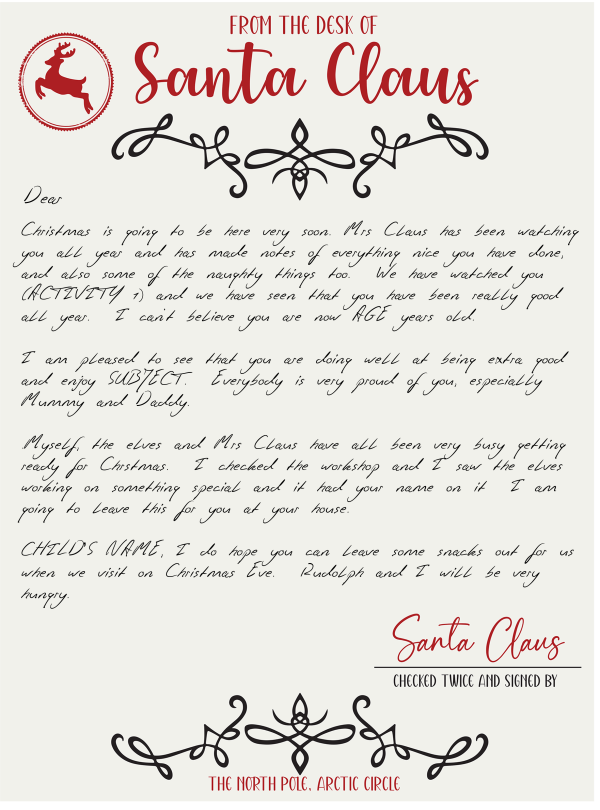 FROM THE DESK OF
Santa Claus
Dear
Christmas is going to be here very soon. Mrs Claus has been watching
you all year and has made notes of everything nice you have done,
and also some of the naughty things too. We have watched you
(ACTIVITY 1) and we have seen that you have been really good
all year. I can't believe you are now AGE years old.
I am pleased to see that you are doing well at being extra good
and enjoy SUBJECT. Everybody is very proud of you, especially
Mummy and Daddy.
Myself, the elves and Mrs Claus have all been very busy getting
ready for Christmas. I checked the workshop and I saw the elves
working on something special and it had your name on it I am
going to leave this for you at your house.
CHILD'S NAME, I do hope you can leave some snacks out for us
when we visit on Christmas Eve. Rudolph and I will be very
hungry.
Santa Claus
CHECKED TWICE AND SIGNED BY
THE NORTH POLE, ARCTIC CIRCLE